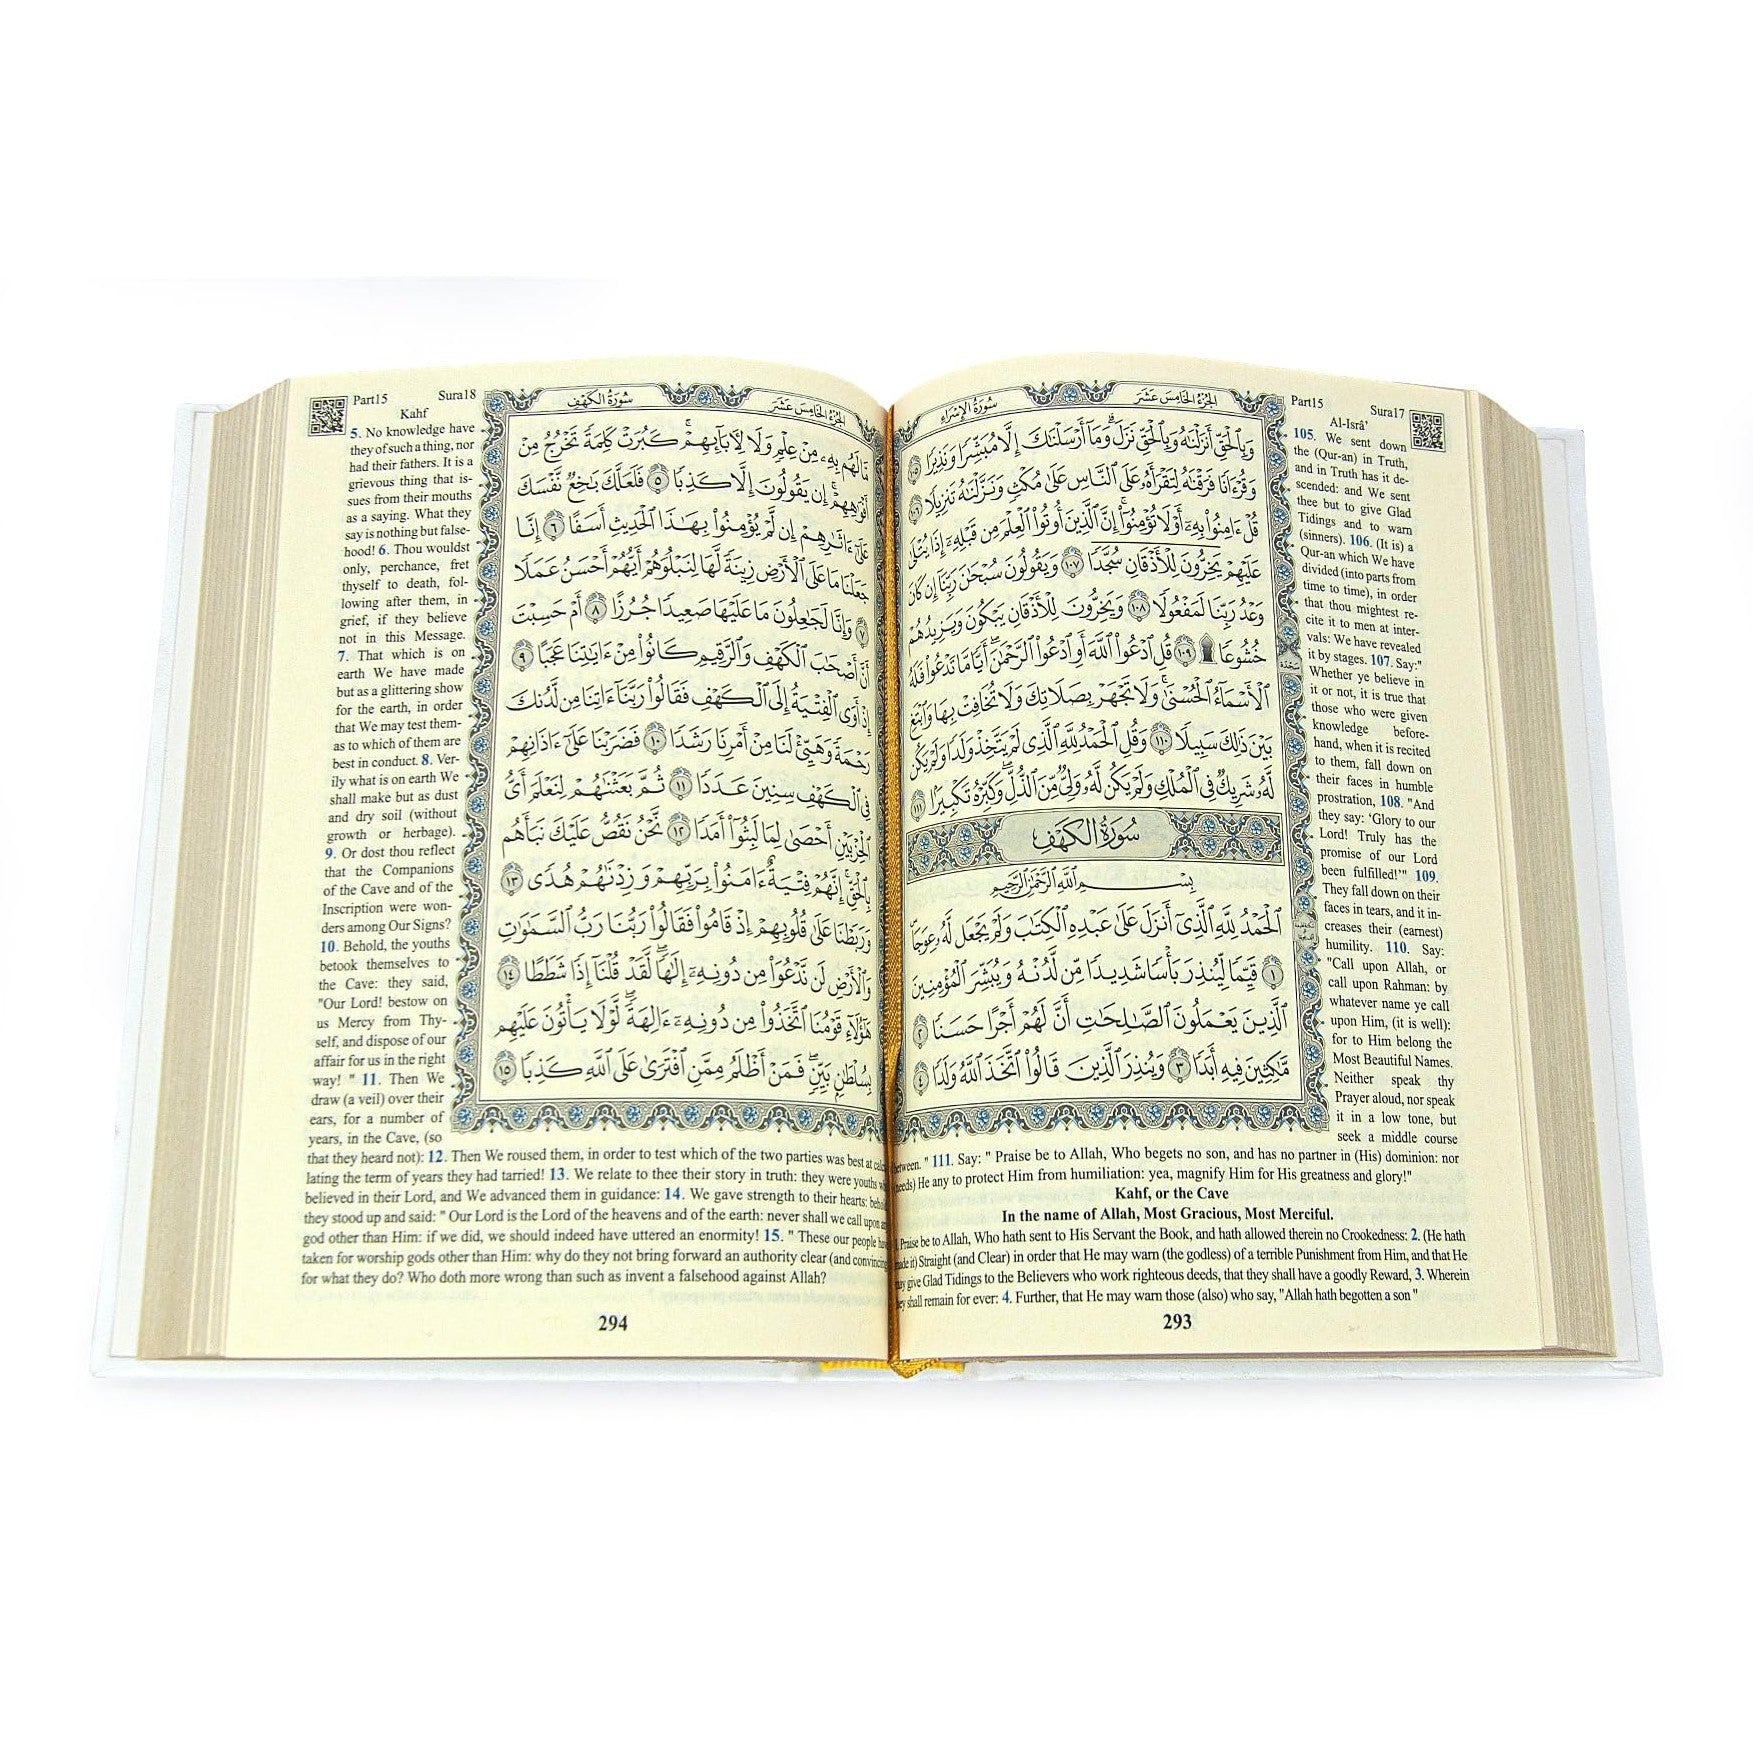 الجُزْءُ الخَامِسَ عَشَرَ
سُورَةُ الإِسْرَاءِ
وَبِٱلْحَقِّ أَنزَلْنَٰهُ وَبِٱلْحَقِّ نَزَلَۗ وَمَآ أَرْسَلْنَٰكَ إِلَّا مُبَشِّرًا وَنَذِيرًا ١٠٥
وَقُرْءَانًا فَرَقْنَٰهُ لِتَقْرَأَهُۥ عَلَى ٱلنَّاسِ عَلَىٰ مُكْثٍ وَنَزَّلْنَٰهُ تَنزِيلًا ١٠٦
قُلْ ءَامِنُوا۟ بِهِۦٓ أَوْ لَا تُؤْمِنُوٓا۟ۚ إِنَّ ٱلَّذِينَ أُوتُوا۟ ٱلْعِلْمَ مِن قَبْلِهِۦٓ إِذَا يُتْلَىٰ
عَلَيْهِمْ يَخِرُّونَ لِلْأَذْقَانِ سُجَّدًا ١٠٧ وَيَقُولُونَ سُبْحَٰنَ رَبِّنَآ إِن كَانَ
وَعْدُ رَبِّنَا لَمَفْعُولًا ١٠٨ وَيَخِرُّونَ لِلْأَذْقَانِ يَبْكُونَ وَيَزِيدُهُمْ
خُشُوعًا ١٠٩ قُلِ ٱدْعُوا۟ ٱللَّهَ أَوِ ٱدْعُوا۟ ٱلرَّحْمَٰنَۖ أَيًّا مَّا تَدْعُوا۟ فَلَهُ
ٱلْأَسْمَآءُ ٱلْحُسْنَىٰۚ وَلَا تَجْهَرْ بِصَلَاتِكَ وَلَا تُخَافِتْ بِهَا وَٱبْتَغِ
بَيْنَ ذَٰلِكَ سَبِيلًا ١١٠ وَقُلِ ٱلْحَمْدُ لِلَّهِ ٱلَّذِى لَمْ يَتَّخِذْ وَلَدًا وَلَمْ يَكُن
لَّهُۥ شَرِيكٌ فِى ٱلْمُلْكِ وَلَمْ يَكُن لَّهُۥ وَلِىٌّ مِّنَ ٱلذُّلِّۖ وَكَبِّرْهُ تَكْبِيرًۢا ١١١
سُورَةُ الكَهْفِ
بِسْمِ ٱللَّهِ ٱلرَّحْمَٰنِ ٱلرَّحِيمِ
ٱلْحَمْدُ لِلَّهِ ٱلَّذِىٓ أَنزَلَ عَلَىٰ عَبْدِهِ ٱلْكِتَٰبَ وَلَمْ يَجْعَل لَّهُۥ عِوَجَاۜ
١ قَيِّمًا لِّيُنذِرَ بَأْسًا شَدِيدًا مِّن لَّدُنْهُ وَيُبَشِّرَ ٱلْمُؤْمِنِينَ
ٱلَّذِينَ يَعْمَلُونَ ٱلصَّٰلِحَٰتِ أَنَّ لَهُمْ أَجْرًا حَسَنًا ٢
مَّٰكِثِينَ فِيهِ أَبَدًا ٣ وَيُنذِرَ ٱلَّذِينَ قَالُوا۟ ٱتَّخَذَ ٱللَّهُ وَلَدًا ٤
سَجْدَة
Part15
Sura17
Al-Isrâ'
105. We sent down
the (Qur-an) in Truth,
and in Truth has it de-
scended: and We sent
thee but to give Glad
Tidings and to warn
(sinners). 106. (It is) a
Qur-an which We have
divided (into parts from
time to time), in order
that thou mightest re-
cite it to men at inter-
vals: We have revealed
it by stages. 107. Say:"
Whether ye believe in
it or not, it is true that
those who were given
knowledge before-
hand, when it is recited
to them, fall down on
their faces in humble
prostration, 108. "And
they say: 'Glory to our
Lord! Truly has the
promise of our Lord
been fulfilled!'" 109.
They fall down on their
faces in tears, and it in-
creases their (earnest)
humility. 110. Say:
"Call upon Allah, or
call upon Rahman: by
whatever name ye call
upon Him, (it is well):
for to Him belong the
Most Beautiful Names.
Neither speak thy
Prayer aloud, nor speak
it in a low tone, but
seek a middle course
between. " 111. Say: " Praise be to Allah, Who begets no son, and has no partner in (His) dominion: nor
needs) He any to protect Him from humiliation: yea, magnify Him for His greatness and glory!"
Kahf, or the Cave
In the name of Allah, Most Gracious, Most Merciful.
1. Praise be to Allah, Who hath sent to His Servant the Book, and hath allowed therein no Crookedness: 2. (He hath
made it) Straight (and Clear) in order that He may warn (the godless) of a terrible Punishment from Him, and that He
may give Glad Tidings to the Believers who work righteous deeds, that they shall have a goodly Reward, 3. Wherein
they shall remain for ever: 4. Further, that He may warn those (also) who say, "Allah hath begotten a son "
293
الجُزْءُ الخَامِسَ عَشَرَ
سُورَةُ الكَهْفِ
مَّا لَهُم بِهِۦ مِنْ عِلْمٍ وَلَا لِءَابَآئِهِمْۚ كَبُرَتْ كَلِمَةً تَخْرُجُ مِنْ
أَفْوَٰهِهِمْۚ إِن يَقُولُونَ إِلَّا كَذِبًا ٥ فَلَعَلَّكَ بَٰخِعٌ نَّفْسَكَ
عَلَىٰٓ ءَاثَٰرِهِمْ إِن لَّمْ يُؤْمِنُوا۟ بِهَٰذَا ٱلْحَدِيثِ أَسَفًا ٦ إِنَّا
جَعَلْنَا مَا عَلَى ٱلْأَرْضِ زِينَةً لَّهَا لِنَبْلُوَهُمْ أَيُّهُمْ أَحْسَنُ عَمَلًا
٧ وَإِنَّا لَجَٰعِلُونَ مَا عَلَيْهَا صَعِيدًا جُرُزًا ٨ أَمْ حَسِبْتَ
أَنَّ أَصْحَٰبَ ٱلْكَهْفِ وَٱلرَّقِيمِ كَانُوا۟ مِنْ ءَايَٰتِنَا عَجَبًا ٩
إِذْ أَوَى ٱلْفِتْيَةُ إِلَى ٱلْكَهْفِ فَقَالُوا۟ رَبَّنَآ ءَاتِنَا مِن لَّدُنكَ
رَحْمَةً وَهَيِّئْ لَنَا مِنْ أَمْرِنَا رَشَدًا ١٠ فَضَرَبْنَا عَلَىٰٓ ءَاذَانِهِمْ
فِى ٱلْكَهْفِ سِنِينَ عَدَدًا ١١ ثُمَّ بَعَثْنَٰهُمْ لِنَعْلَمَ أَىُّ
ٱلْحِزْبَيْنِ أَحْصَىٰ لِمَا لَبِثُوٓا۟ أَمَدًا ١٢ نَّحْنُ نَقُصُّ عَلَيْكَ نَبَأَهُم
بِٱلْحَقِّۚ إِنَّهُمْ فِتْيَةٌ ءَامَنُوا۟ بِرَبِّهِمْ وَزِدْنَٰهُمْ هُدًى ١٣
وَرَبَطْنَا عَلَىٰ قُلُوبِهِمْ إِذْ قَامُوا۟ فَقَالُوا۟ رَبُّنَا رَبُّ ٱلسَّمَٰوَٰتِ
وَٱلْأَرْضِ لَن نَّدْعُوَا۟ مِن دُونِهِۦٓ إِلَٰهًاۖ لَّقَدْ قُلْنَآ إِذًا شَطَطًا ١٤
هَٰٓؤُلَآءِ قَوْمُنَا ٱتَّخَذُوا۟ مِن دُونِهِۦٓ ءَالِهَةًۖ لَّوْلَا يَأْتُونَ عَلَيْهِم
بِسُلْطَٰنٍۭ بَيِّنٍۖ فَمَنْ أَظْلَمُ مِمَّنِ ٱفْتَرَىٰ عَلَى ٱللَّهِ كَذِبًا ١٥
Part15
Sura18
Kahf
5. No knowledge have
they of such a thing, nor
had their fathers. It is a
grievous thing that is-
sues from their mouths
as a saying. What they
say is nothing but false-
hood! 6. Thou wouldst
only, perchance, fret
thyself to death, fol-
lowing after them, in
grief, if they believe
not in this Message.
7. That which is on
earth We have made
but as a glittering show
for the earth, in order
that We may test them-
as to which of them are
best in conduct. 8. Ver-
ily what is on earth We
shall make but as dust
and dry soil (without
growth or herbage).
9. Or dost thou reflect
that the Companions
of the Cave and of the
Inscription were won-
ders among Our Signs?
10. Behold, the youths
betook themselves to
the Cave: they said,
"Our Lord! bestow on
us Mercy from Thy-
self, and dispose of our
affair for us in the right
way! " 11. Then We
draw (a veil) over their
ears, for a number of
years, in the Cave, (so
that they heard not): 12. Then We roused them, in order to test which of the two parties was best at calcu
lating the term of years they had tarried! 13. We relate to thee their story in truth: they were youths
believed in their Lord, and We advanced them in guidance: 14. We gave strength to their hearts: behold
they stood up and said: " Our Lord is the Lord of the heavens and of the earth: never shall we call upon
god other than Him: if we did, we should indeed have uttered an enormity! 15. " These our people
taken for worship gods other than Him: why do they not bring forward an authority clear (and convincing
for what they do? Who doth more wrong than such as invent a falsehood against Allah?
294